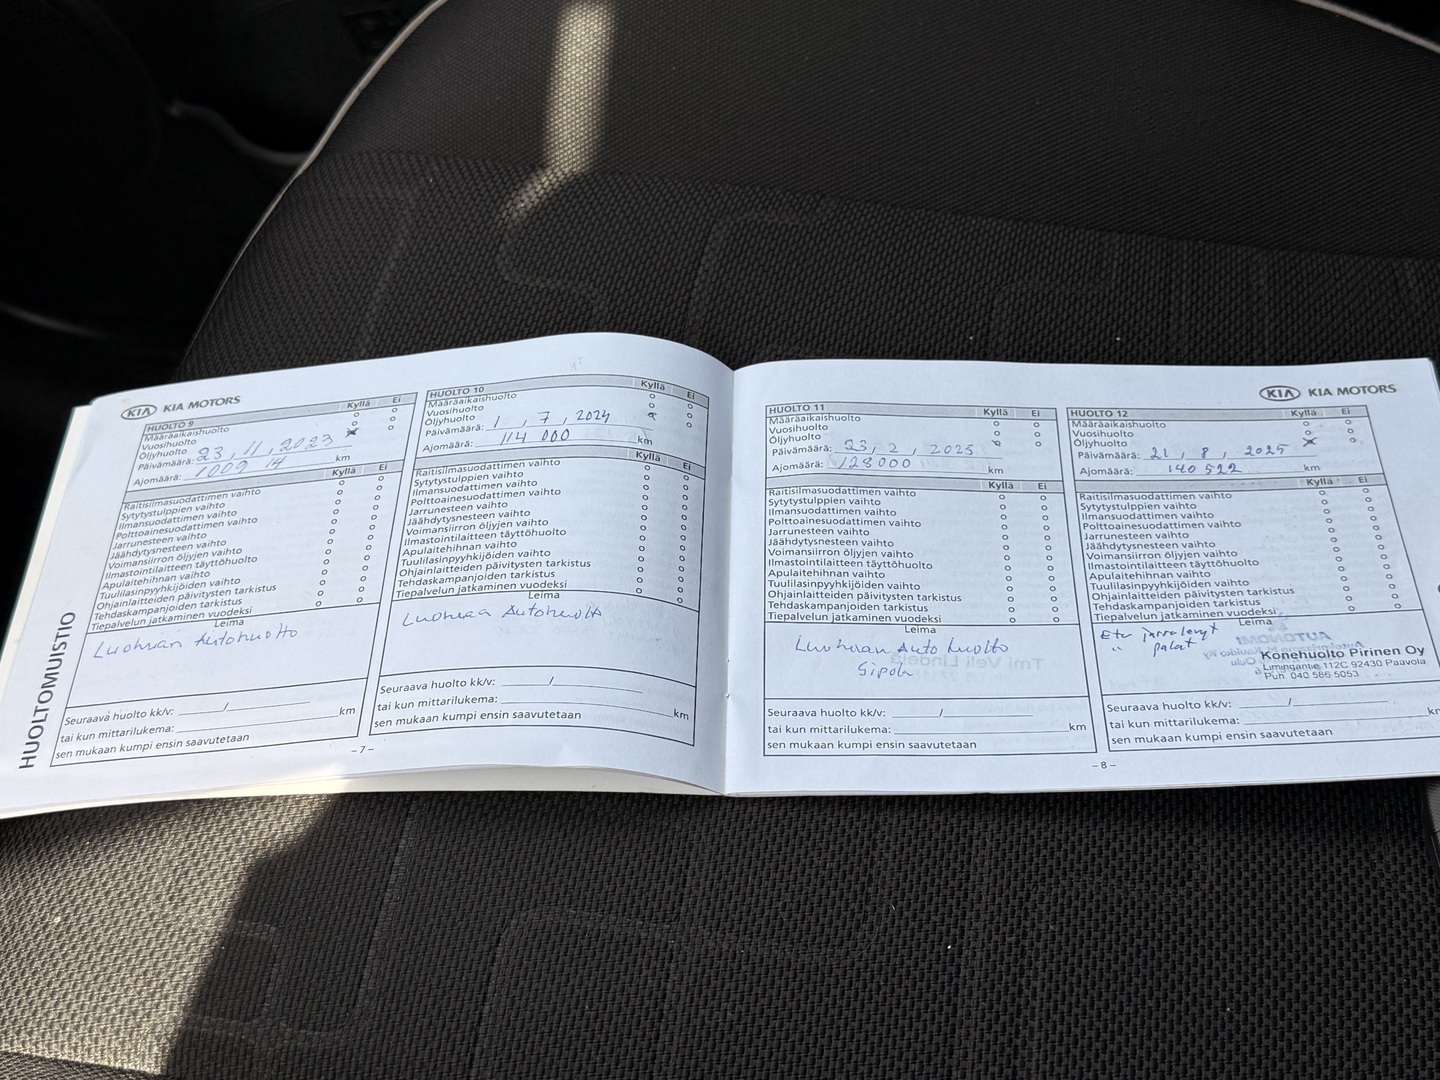 KIA KIA MOTORS
HUOLTOMUISTIO
HUOLTO 9 Kyllä Ei
Määräaikaishuolto o o
Vuosihuolto o o
Öljyhuolto x o
Päivämäärä: 23, 11, 2023
Ajomäärä: 1009 14 km
Kyllä Ei
Raitisilmasuodattimen vaihto o o
Sytytystulppien vaihto o o
Ilmansuodattimen vaihto o o
Polttoainesuodattimen vaihto o o
Jarrunesteen vaihto o o
Jäähdytysnesteen vaihto o o
Voimansiirron öljyjen vaihto o o
Ilmastointilaitteen täyttöhuolto o o
Apulaitehihnan vaihto o o
Tuulilasinpyyhkijöiden vaihto o o
Ohjainlaitteiden päivitysten tarkistus o o
Tehdaskampanjoiden tarkistus o o
Tiepalvelun jatkaminen vuodeksi o o
Leima
Luohuan Autohuolto
Seuraava huolto kk/v: /
tai kun mittarilukema: km
sen mukaan kumpi ensin saavutetaan
-7-
HUOLTO 10 Kyllä Ei
Määräaikaishuolto o o
Vuosihuolto o o
Öljyhuolto o
Päivämäärä: 1, 7, 2024
Ajomäärä: 114 000 km
Kyllä Ei
Raitisilmasuodattimen vaihto o o
Sytytystulppien vaihto o o
Ilmansuodattimen vaihto o o
Polttoainesuodattimen vaihto o o
Jarrunesteen vaihto o o
Jäähdytysnesteen vaihto o o
Voimansiirron öljyjen vaihto o o
Ilmastointilaitteen täyttöhuolto o o
Apulaitehihnan vaihto o o
Tuulilasinpyyhkijöiden vaihto o o
Ohjainlaitteiden päivitysten tarkistus o o
Tehdaskampanjoiden tarkistus o o
Tiepalvelun jatkaminen vuodeksi o o
Leima
Luohua Autohuolto
Seuraava huolto kk/v: /
tai kun mittarilukema: km
sen mukaan kumpi ensin saavutetaan
KIA KIA MOTORS
HUOLTO 11 Kyllä Ei
Määräaikaishuolto o o
Vuosihuolto o o
Öljyhuolto o
Päivämäärä: 23, 2, 2025
Ajomäärä: 128000 km
Kyllä Ei
Raitisilmasuodattimen vaihto o o
Sytytystulppien vaihto o o
Ilmansuodattimen vaihto o o
Polttoainesuodattimen vaihto o o
Jarrunesteen vaihto o o
Jäähdytysnesteen vaihto o o
Voimansiirron öljyjen vaihto o o
Ilmastointilaitteen täyttöhuolto o o
Apulaitehihnan vaihto o o
Tuulilasinpyyhkijöiden vaihto o o
Ohjainlaitteiden päivitysten tarkistus o o
Tehdaskampanjoiden tarkistus o o
Tiepalvelun jatkaminen vuodeksi o o
Leima
Luohuan Auto huolto
Sipola
Seuraava huolto kk/v: /
tai kun mittarilukema: km
sen mukaan kumpi ensin saavutetaan
-8-
HUOLTO 12 Kyllä Ei
Määräaikaishuolto o o
Vuosihuolto o o
Öljyhuolto x o
Päivämäärä: 21, 8, 2025
Ajomäärä: 140 522 km
Kyllä Ei
Raitisilmasuodattimen vaihto o o
Sytytystulppien vaihto o o
Ilmansuodattimen vaihto o o
Polttoainesuodattimen vaihto o o
Jarrunesteen vaihto o o
Jäähdytysnesteen vaihto o o
Voimansiirron öljyjen vaihto o o
Ilmastointilaitteen täyttöhuolto o o
Apulaitehihnan vaihto o o
Tuulilasinpyyhkijöiden vaihto o o
Ohjainlaitteiden päivitysten tarkistus o o
Tehdaskampanjoiden tarkistus o o
Tiepalvelun jatkaminen vuodeksi o o
Leima
Etu jarrulevyt
" palat
Konehuolto Pirinen Oy
Limingantie 112C 92430 Paavola
Puh. 040 586 5053
Seuraava huolto kk/v: /
tai kun mittarilukema: km
sen mukaan kumpi ensin saavutetaan